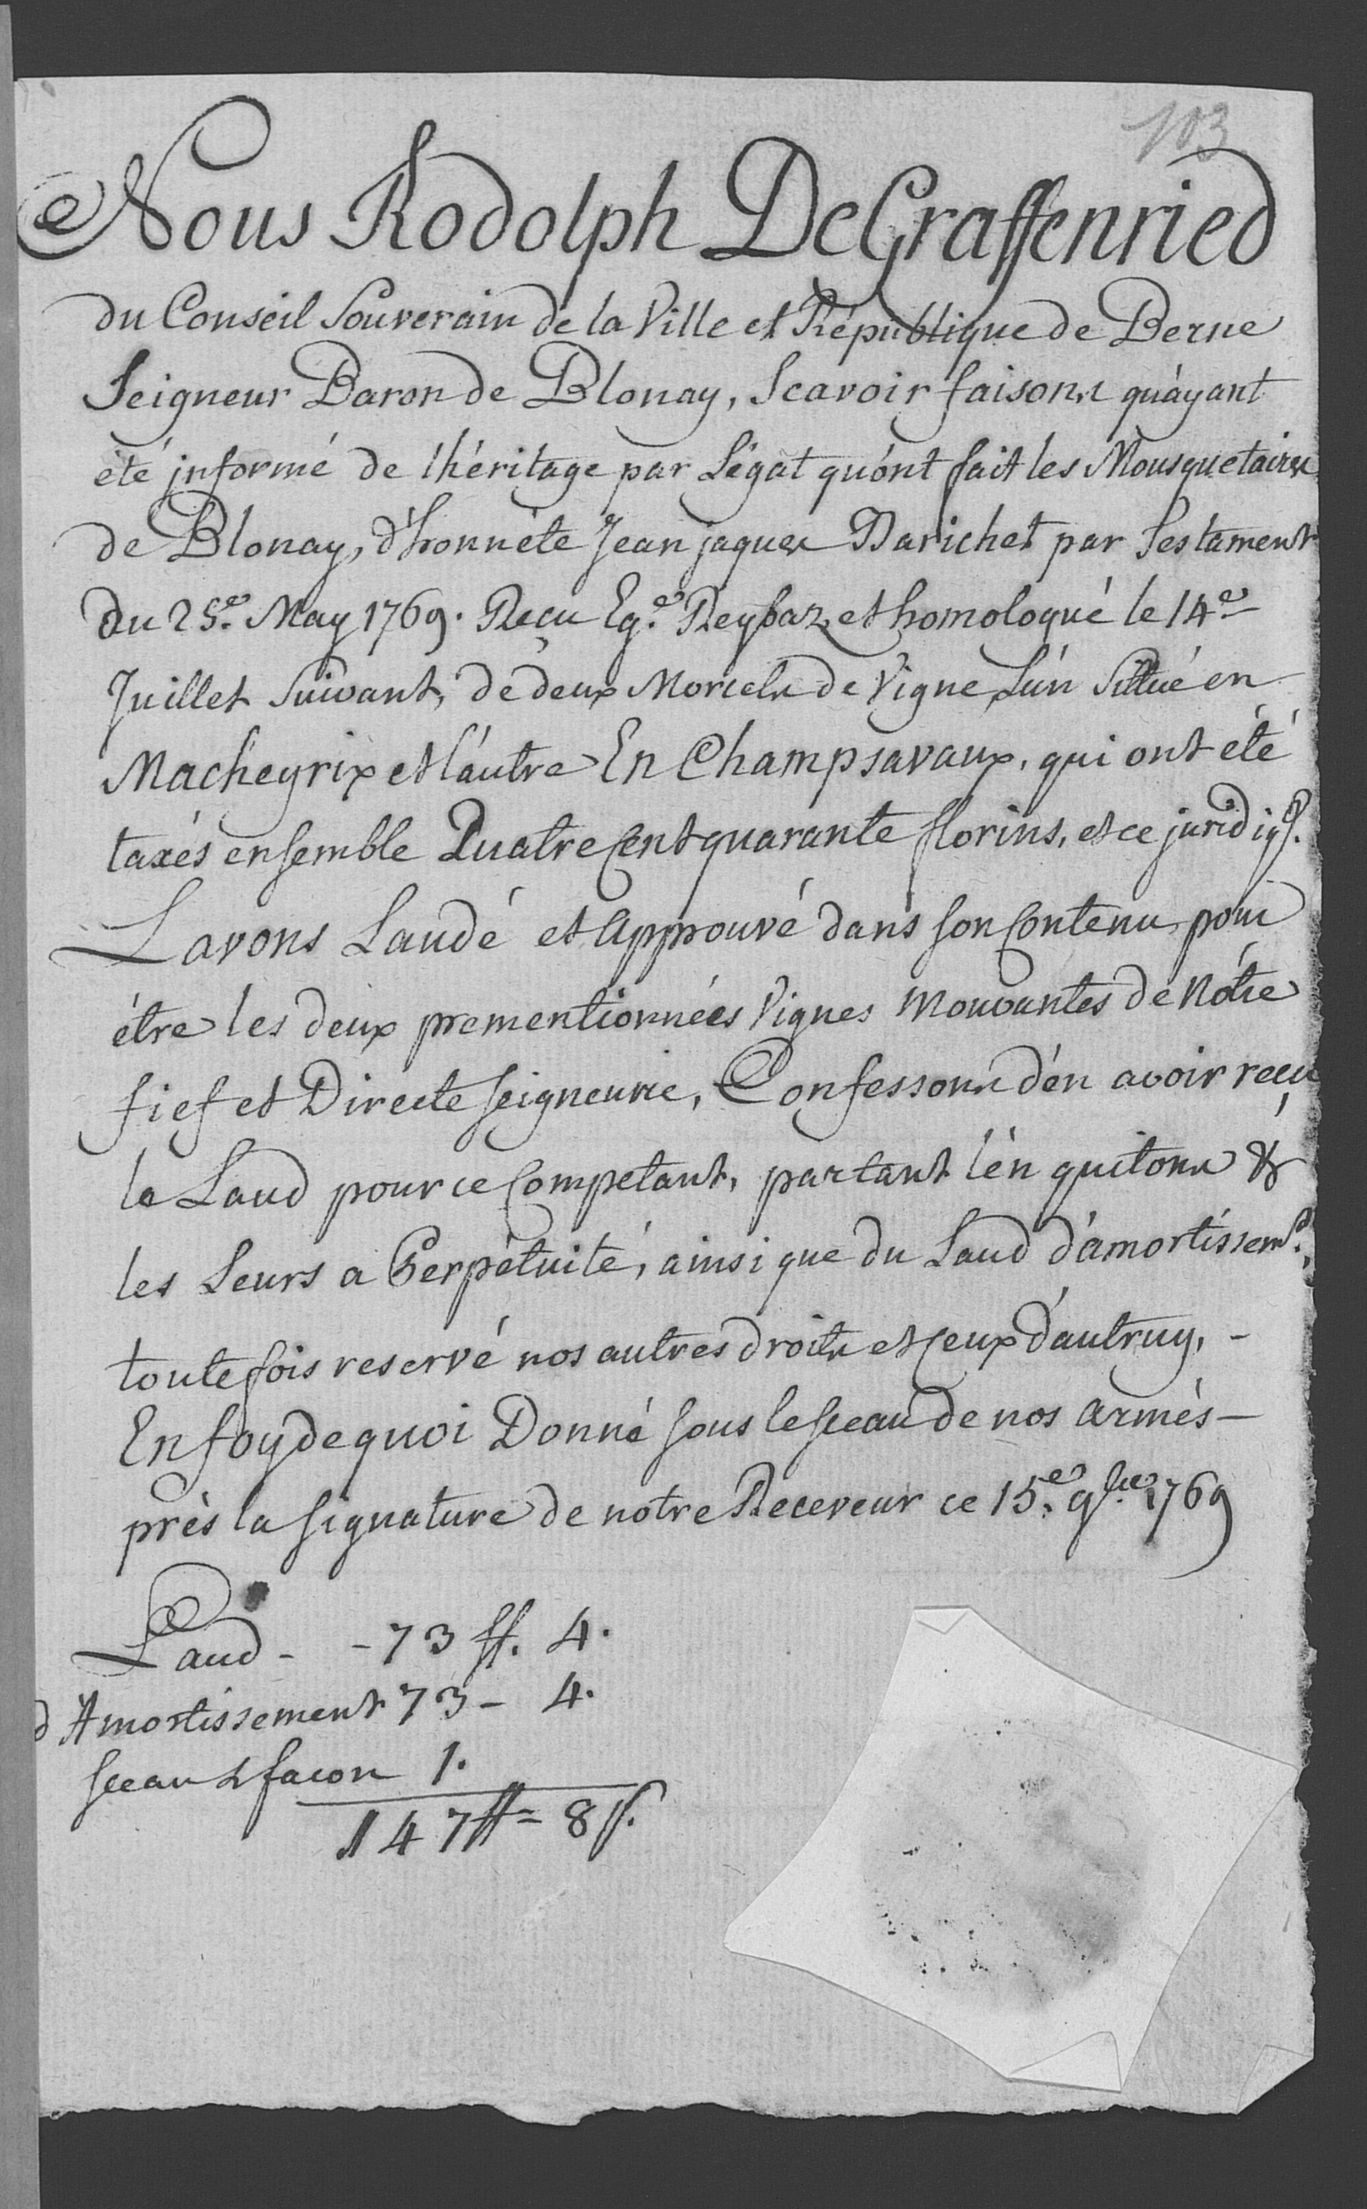 103
Nous Rodolph DeGraffenried
du Conseil Souverain de la Ville et République de Berne
Seigneur Baron de Blonay, Scavoir faisons qu'ayant
été informé de l'héritage par Légat qu'ont fait les Mousquetaires
de Blonay, d'honnête Jean jaques Barichet par Testament
du 25.e May 1769. Recu Eg.e Reybaz, et homologué le 14e
Juillet Suivant, de deux Morcels de Vigne L'un Sittué en
Macheyrix et l'autre En Champsavaux, qui ont été
taxés ensemble Quatre Cent quarante florins, et ce
L'avons Laudé et Approuvé dans son Contenu, pour
être les deux prementionnées Vignes Mouvantes de Nôtre
fief et Directe Seigneurie, Confessons d'en avoir reçu
le Laud pour ce Competant, partant l'en quitons &
les Leurs a Perpétuité, ainsi que du Laud d'amortissemt.,
toutefois reservé nos autres droits et Ceux d'autruy, -
En foy de quoi Donné sous le sceau de nos armés -
près la signature de notre Receveur ce 15.e 9bre 1769
Laud - - 73 ff. 4.
d'Amortissement 73 - 4.
sceau & facon 1.
147 ff = 8 s.